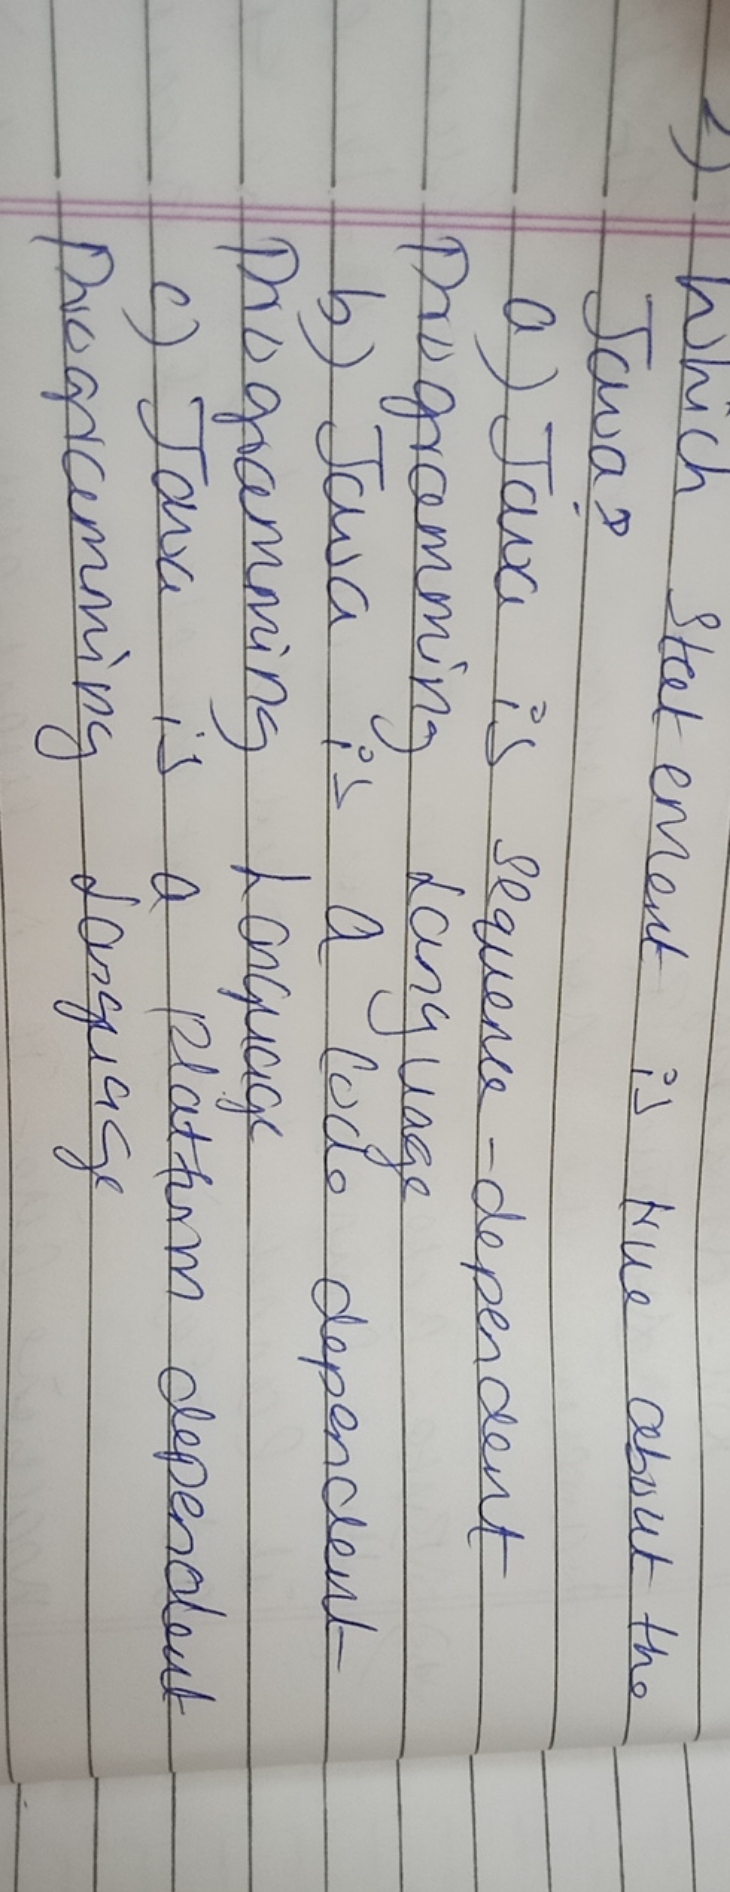 2) Which Statement is true about the
Java?
a) Java is sequence-dependent
Programming Language
b) Java is a Code dependent
Programming Language
c) Java is a platform dependent
programming Language